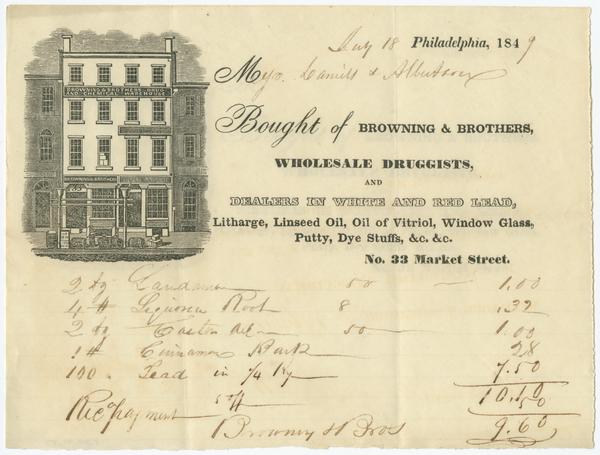 July 18 Philadelphia, 1849
M Daniels & Albertson
BROWNING & BROTHERS, DRUG
AND CHEMICAL WAREHOUSE
BROWNING & BROTHERS
Bought of BROWNING & BROTHERS,
WHOLESALE DRUGGISTS,
AND
DEALERS IN WHITE AND RED LEAD,
Litharge, Linseed Oil, Oil of Vitriol, Window Glass,
Putty, Dye Stuffs, &c. &c.
No. 33 Market Street.
2 Laudanum 50 1.00
4 # Root 8 .32
2 Castor Oil 50 1.00
1 # Cinnamon Bark 28
100 Lead in 1/4 Kg 7.50
10.10
5 off 50
Rec payment 9.60
Browning & Bros